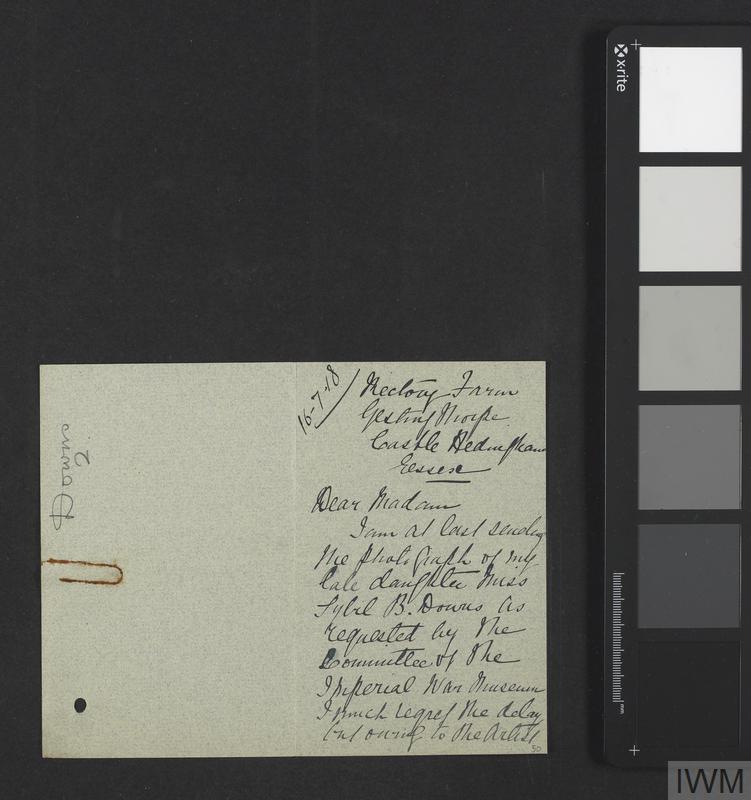 16-7-18
Rectory Farm
Gestingthorpe
Castle Hedingham
Essex
Dear Madam
I am at last sending
the photograph of my
late daughter Miss
Sybil B. Downs as
requested by the
Committee of the
Imperial War Museum
I much regret the delay
but owing to the Artist
50
Downs
2
x-rite
mm
IWM